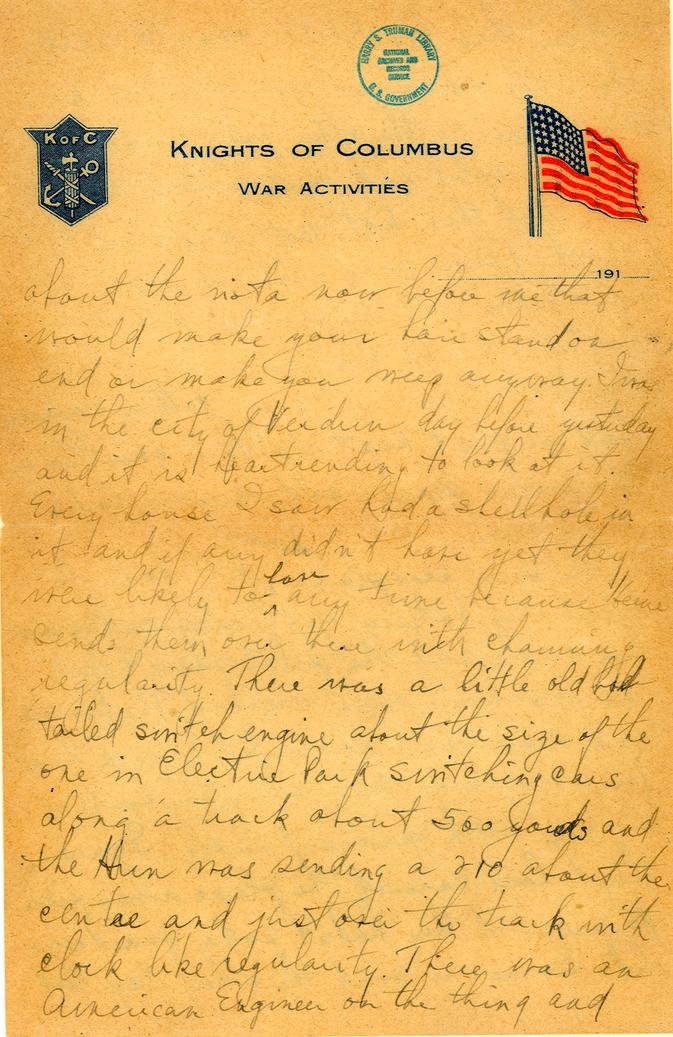 HARRY S. TRUMAN LIBRARY
NATIONAL
ARCHIVES AND
RECORDS
SERVICE
U. S. GOVERNMENT
K OF C
KNIGHTS OF COLUMBUS
WAR ACTIVITIES
191
about the vista now before me that
would make your hair stand on
end or make you weep anyway. I was
in the city of Verdun day before yesterday
and it is heartrending to look at it.
Every house I saw had a shell hole in
it and if any didn't have yet they
were likely to have any time because Heine
sends them over there with charming
regularity. There was a little old bob
tailed switch engine about the size of the
one in Electric Park switching cars
along a track about 500 yards and
the Hun was sending a 210 about the
center and just over the track with
clock like regularity. There was an
American Engineer on the thing and